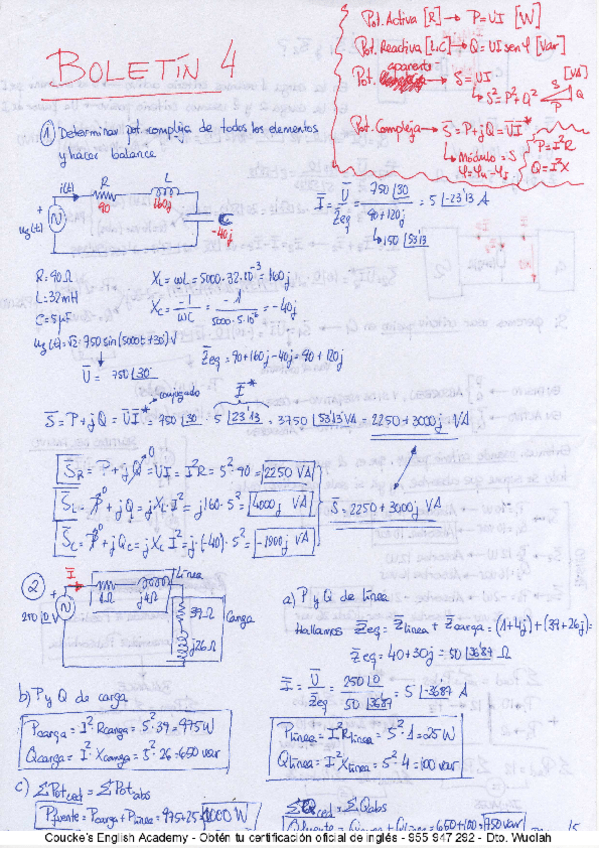 BOLETÍN 4
Pot. Activa [R] → P=UI [W]
Pot. Reactiva [L,C] → Q=UI sen φ [Var]
aparente
Pot. → S=UI [VA]
S²=P²+Q²
S Q
P
Pot. Compleja → S̄=P+jQ=ŪĪ*
módulo=S
φ=φu-φI
P=I²R
Q=I²X
① Determinar pot. compleja de todos los elementos
y hacer balance
i(t) R L
90 160j C
-40j
ug(t)
Ī = Ū/Z̄eq = 750|30/(90+120j) = 5|-23'13 A
150|53'13
R=90Ω XL=ωL=5000·32·10⁻³=160j
L=32mH
C=5μF XC=-1/ωC=-1/(5000·5·10⁻⁶)=-40j
ug(t)=√2·750 sin(5000t+30) V
Z̄eq=90+160j-40j=90+120j
Ū = 750|30
conjugado
Ī*
S̄=P+jQ=ŪĪ*=750|30·5|23'13=3750|53'13 VA=2250+3000j VA
S̄R=P+jQ⁰=UI=I²R=5²·90=2250 VA
S̄L=P⁰+jQ=jXL·I²=j160·5²=4000j VA
S̄=2250+3000j VA
S̄C=P⁰+jQC=jXC I²=j·(-40)·5²=-1000j VA
② Ī Línea
1Ω j4Ω
250|0 V 39Ω Carga
j26Ω
a) P y Q de línea
Hallamos Z̄eq=Z̄línea+Z̄carga=(1+4j)+(39+26j)=
Z̄eq=40+30j=50|36'87 Ω
Ī=Ū/Z̄eq=250|0/50|36'87=5|-36'87 A
b) P y Q de carga
Pcarga=I²·Rcarga=5²·39=975W
Qcarga=I²·Xcarga=5²·26=650 var
Plínea=I²Rlínea=5²·1=25W
Qlínea=I²Xlínea=5²·4=100 var
c) ΣPotced=ΣPotabs
Pfuente=Pcarga+Plínea=975+25=1000W
ΣQced=ΣQabs
Qfuente=Qcarga+Qlínea=650+100=750var
Coucke's English Academy - Obtén tu certificación oficial de inglés - 955 947 292 - Dto. Wuolah